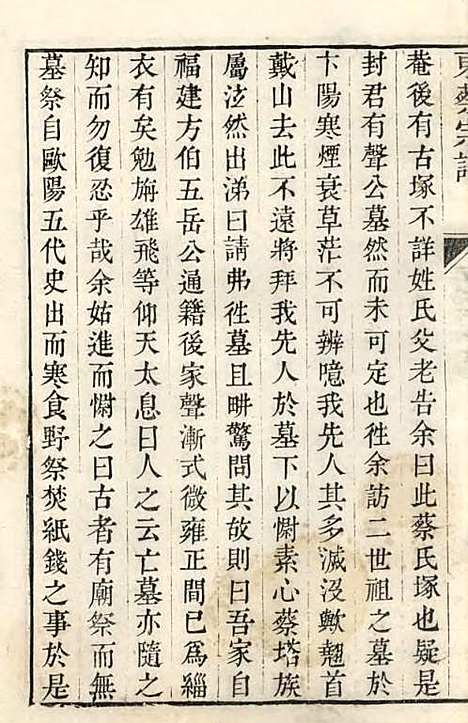 東蔡宗譜
菴後有古塚不詳姓氏父老告余曰此蔡氏塚也疑是
封君有聲公墓然而未可定也徃余訪二世祖之墓於
卞陽寒煙衰草茫不可辨噫我先人其多滅沒歟翹首
戴山去此不遠將拜我先人於墓下以慰素心蔡塔族
屬泫然出涕曰請弗徃墓且畊驚問其故則曰吾家自
福建方伯五岳公通籍後家聲漸式微雍正間已爲緇
衣有矣勉旃雄飛等仰天太息曰人之云亡墓亦隨之
知而勿復忍乎哉余姑進而慰之曰古者有廟祭而無
墓祭自歐陽五代史出而寒食野祭焚紙錢之事於是